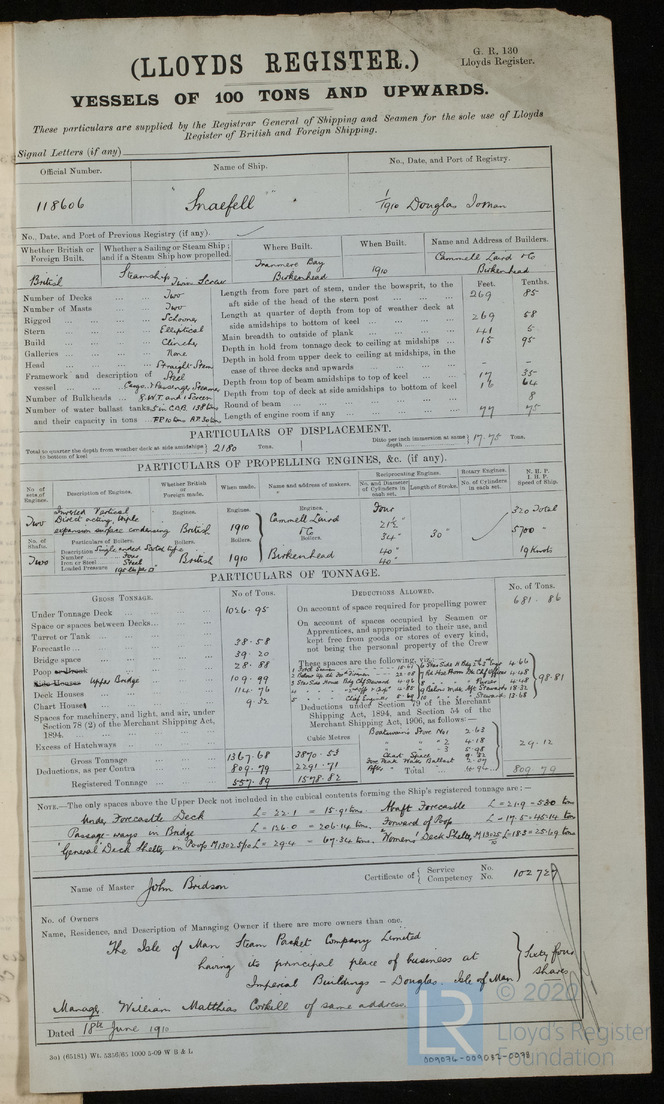 G. R. 130
Lloyds Register.
(LLOYDS REGISTER.)
VESSELS OF 100 TONS AND UPWARDS.
These particulars are supplied by the Registrar General of Shipping and Seamen for the sole use of Lloyds
Register of British and Foreign Shipping.
Signal Letters (if any)
Official Number. Name of Ship. No., Date, and Port of Registry.
118606 "Snaefell" 1/1910 Douglas Ioman
No., Date, and Port of Previous Registry (if any).
Whether British or Foreign Built. Whether a Sailing or Steam Ship; and if a Steam Ship how propelled. Where Built. When Built. Name and Address of Builders.
British Steamship Twin Screw Tranmere Bay Birkenhead 1910 Cammell Laird & Co Birkenhead
Feet. Tenths.
Number of Decks Two
Number of Masts Two
Rigged Schooner
Stern Elliptical
Build Clincher
Galleries None
Head Straight Stem
Framework and description of vessel Steel Cargo & Passenger Steamer
Number of Bulkheads 8 W.T. and 1 Screen
Number of water ballast tanks, and their capacity in tons 5 in C.D.B. 138 tons
Length from fore part of stem, under the bowsprit, to the aft side of the head of the stern post 269 85
Length at quarter of depth from top of weather deck at side amidships to bottom of keel 269 58
Main breadth to outside of plank 41 6
Depth in hold from tonnage deck to ceiling at midships 15 95
Depth in hold from upper deck to ceiling at midships, in the case of three decks and upwards - -
Depth from top of beam amidships to top of keel 17 35
Depth from top of deck at side amidships to bottom of keel 18 64
Round of beam 8
Length of engine room if any 77 75
PARTICULARS OF DISPLACEMENT.
Total to quarter the depth from weather deck at side amidships to bottom of keel } 2180 Tons. Ditto per inch immersion at same depth } 17.75 Tons.
PARTICULARS OF PROPELLING ENGINES, &c. (if any).
No. of sets of Engines. Description of Engines. Whether British or Foreign made. When made. Name and address of makers. Reciprocating Engines. No. and Diameter of Cylinders in each set. Length of Stroke. Rotary Engines. No. of Cylinders in each set. N. H. P. I. H. P. Speed of Ship.
Two Inverted Vertical Direct acting triple expansion surface condensing Engines. British Engines. 1910 Engines. Cammell Laird & Co Birkenhead Four 21½" 34" 40" 40" 30" 320 Total 5700 " 19 Knots
No. of Shafts. Particulars of Boilers. Boilers. Boilers. Boilers.
Two Description Single ended
Number Four
Iron or Steel Steel British 1910
Loaded Pressure 195 lbs per □"
PARTICULARS OF TONNAGE.
GROSS TONNAGE. No. of Tons.
Under Tonnage Deck 1026.95
Space or spaces between Decks
Turret or Tank
Forecastle 38.58
Bridge space 39.20
Poop or Break 28.88
Side Houses Upper Bridge 109.99
Deck Houses 114.76
Chart House 9.32
Spaces for machinery, and light, and air, under Section 78 (2) of the Merchant Shipping Act, 1894.
Excess of Hatchways
Cubic Metres
Gross Tonnage 1367.68 3870.53
Deductions, as per Contra 809.79 2291.71
Registered Tonnage 557.89 1578.82
DEDUCTIONS ALLOWED. No. of Tons.
On account of space required for propelling power 681.86
On account of spaces occupied by Seamen or Apprentices, and appropriated to their use, and kept free from goods or stores of every kind, not being the personal property of the Crew
These spaces are the following, viz.:— 98.81
Deductions under Section 79 of the Merchant Shipping Act, 1894, and Section 54 of the Merchant Shipping Act, 1906, as follows:—
Boatswain's Store No 1 2.63
" " " 2 4.18
" " " 3 5.98
Chart Space 9.32
Fore Peak Water Ballast 2.07
After " " 4.94
29.12
Total 809.79
NOTE.—The only spaces above the Upper Deck not included in the cubical contents forming the Ship's registered tonnage are:—
Under Forecastle Deck L = 22.1 = 15.91 tons. Abaft Forecastle L = 21.9 = 5.30 tons
Passage-ways in Bridge L = 126.0 = 206.14 tons. Forward of Poop L = 17.5 = 45.14 tons
'General' Deck Shelter on Poop M13025/10 L = 29.4 = 67.34 tons. 'Womens' Deck Shelter, M13025/10 L = 18.3 = 25.69 tons
Name of Master John Bridson Certificate of { Service No. Competency No. 102727
No. of Owners
Name, Residence, and Description of Managing Owner if there are more owners than one.
The Isle of Man Steam Packet Company Limited
having its principal place of business at
Imperial Buildings - Douglas. Isle of Man } Sixty four shares
Manager. William Matthias Corkill of same address.
Dated 18th June 1910
3o) (65181) Wt. 5356/65 1000 5-09 W B & L
LR
© 2020
Lloyd's Register
Foundation
009076-009082-0098